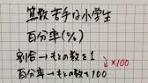 算数苦手な小学生
百分率(%)
割合→もとの数を1
百分率→もとの数を100
×100